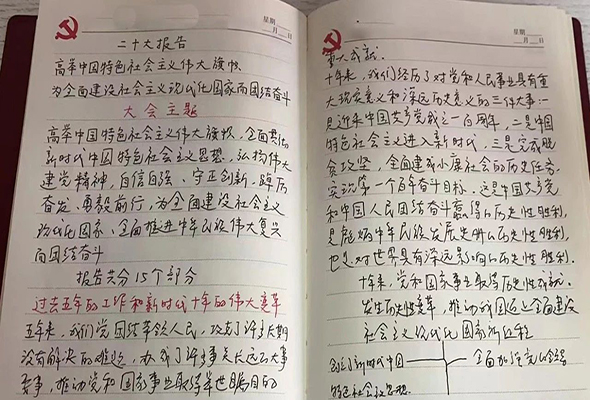 星期
月 日
二十大报告
高举中国特色社会主义伟大旗帜
为全面建设社会主义现代化国家而团结奋斗
大会主题
高举中国特色社会主义伟大旗帜，全面贯彻
新时代中国特色社会主义思想，弘扬伟大
建党精神，自信自强、守正创新，踔厉
奋发、勇毅前行，为全面建设社会主义
现代化国家、全面推进中华民族伟大复兴
而团结奋斗
报告共分15个部分
过去五年的工作和新时代十年的伟大变革
五年来，我们党团结带领人民，攻克了许多长期
没有解决的难题，办成了许多事关长远的大事
要事，推动党和国家事业取得举世瞩目的
星期
月 日
重大成就。
十年来，我们经历了对党和人民事业具有重
大现实意义和深远历史意义的三件大事：一
是迎来中国共产党成立一百周年，二是中国
特色社会主义进入新时代，三是完成脱
贫攻坚，全面建成小康社会的历史任务，
实现第一个百年奋斗目标。这是中国共产党
和中国人民团结奋斗赢得的历史性胜利，
是彪炳中华民族发展史册的历史性胜利，
也是对世界具有深远影响的历史性胜利。
十年来，党和国家事业取得历史性成就、
发生历史性变革，推动我国迈上全面建设
社会主义现代化国家新征程
创立了新时代中国
特色社会主义思想
全面加强党的领导